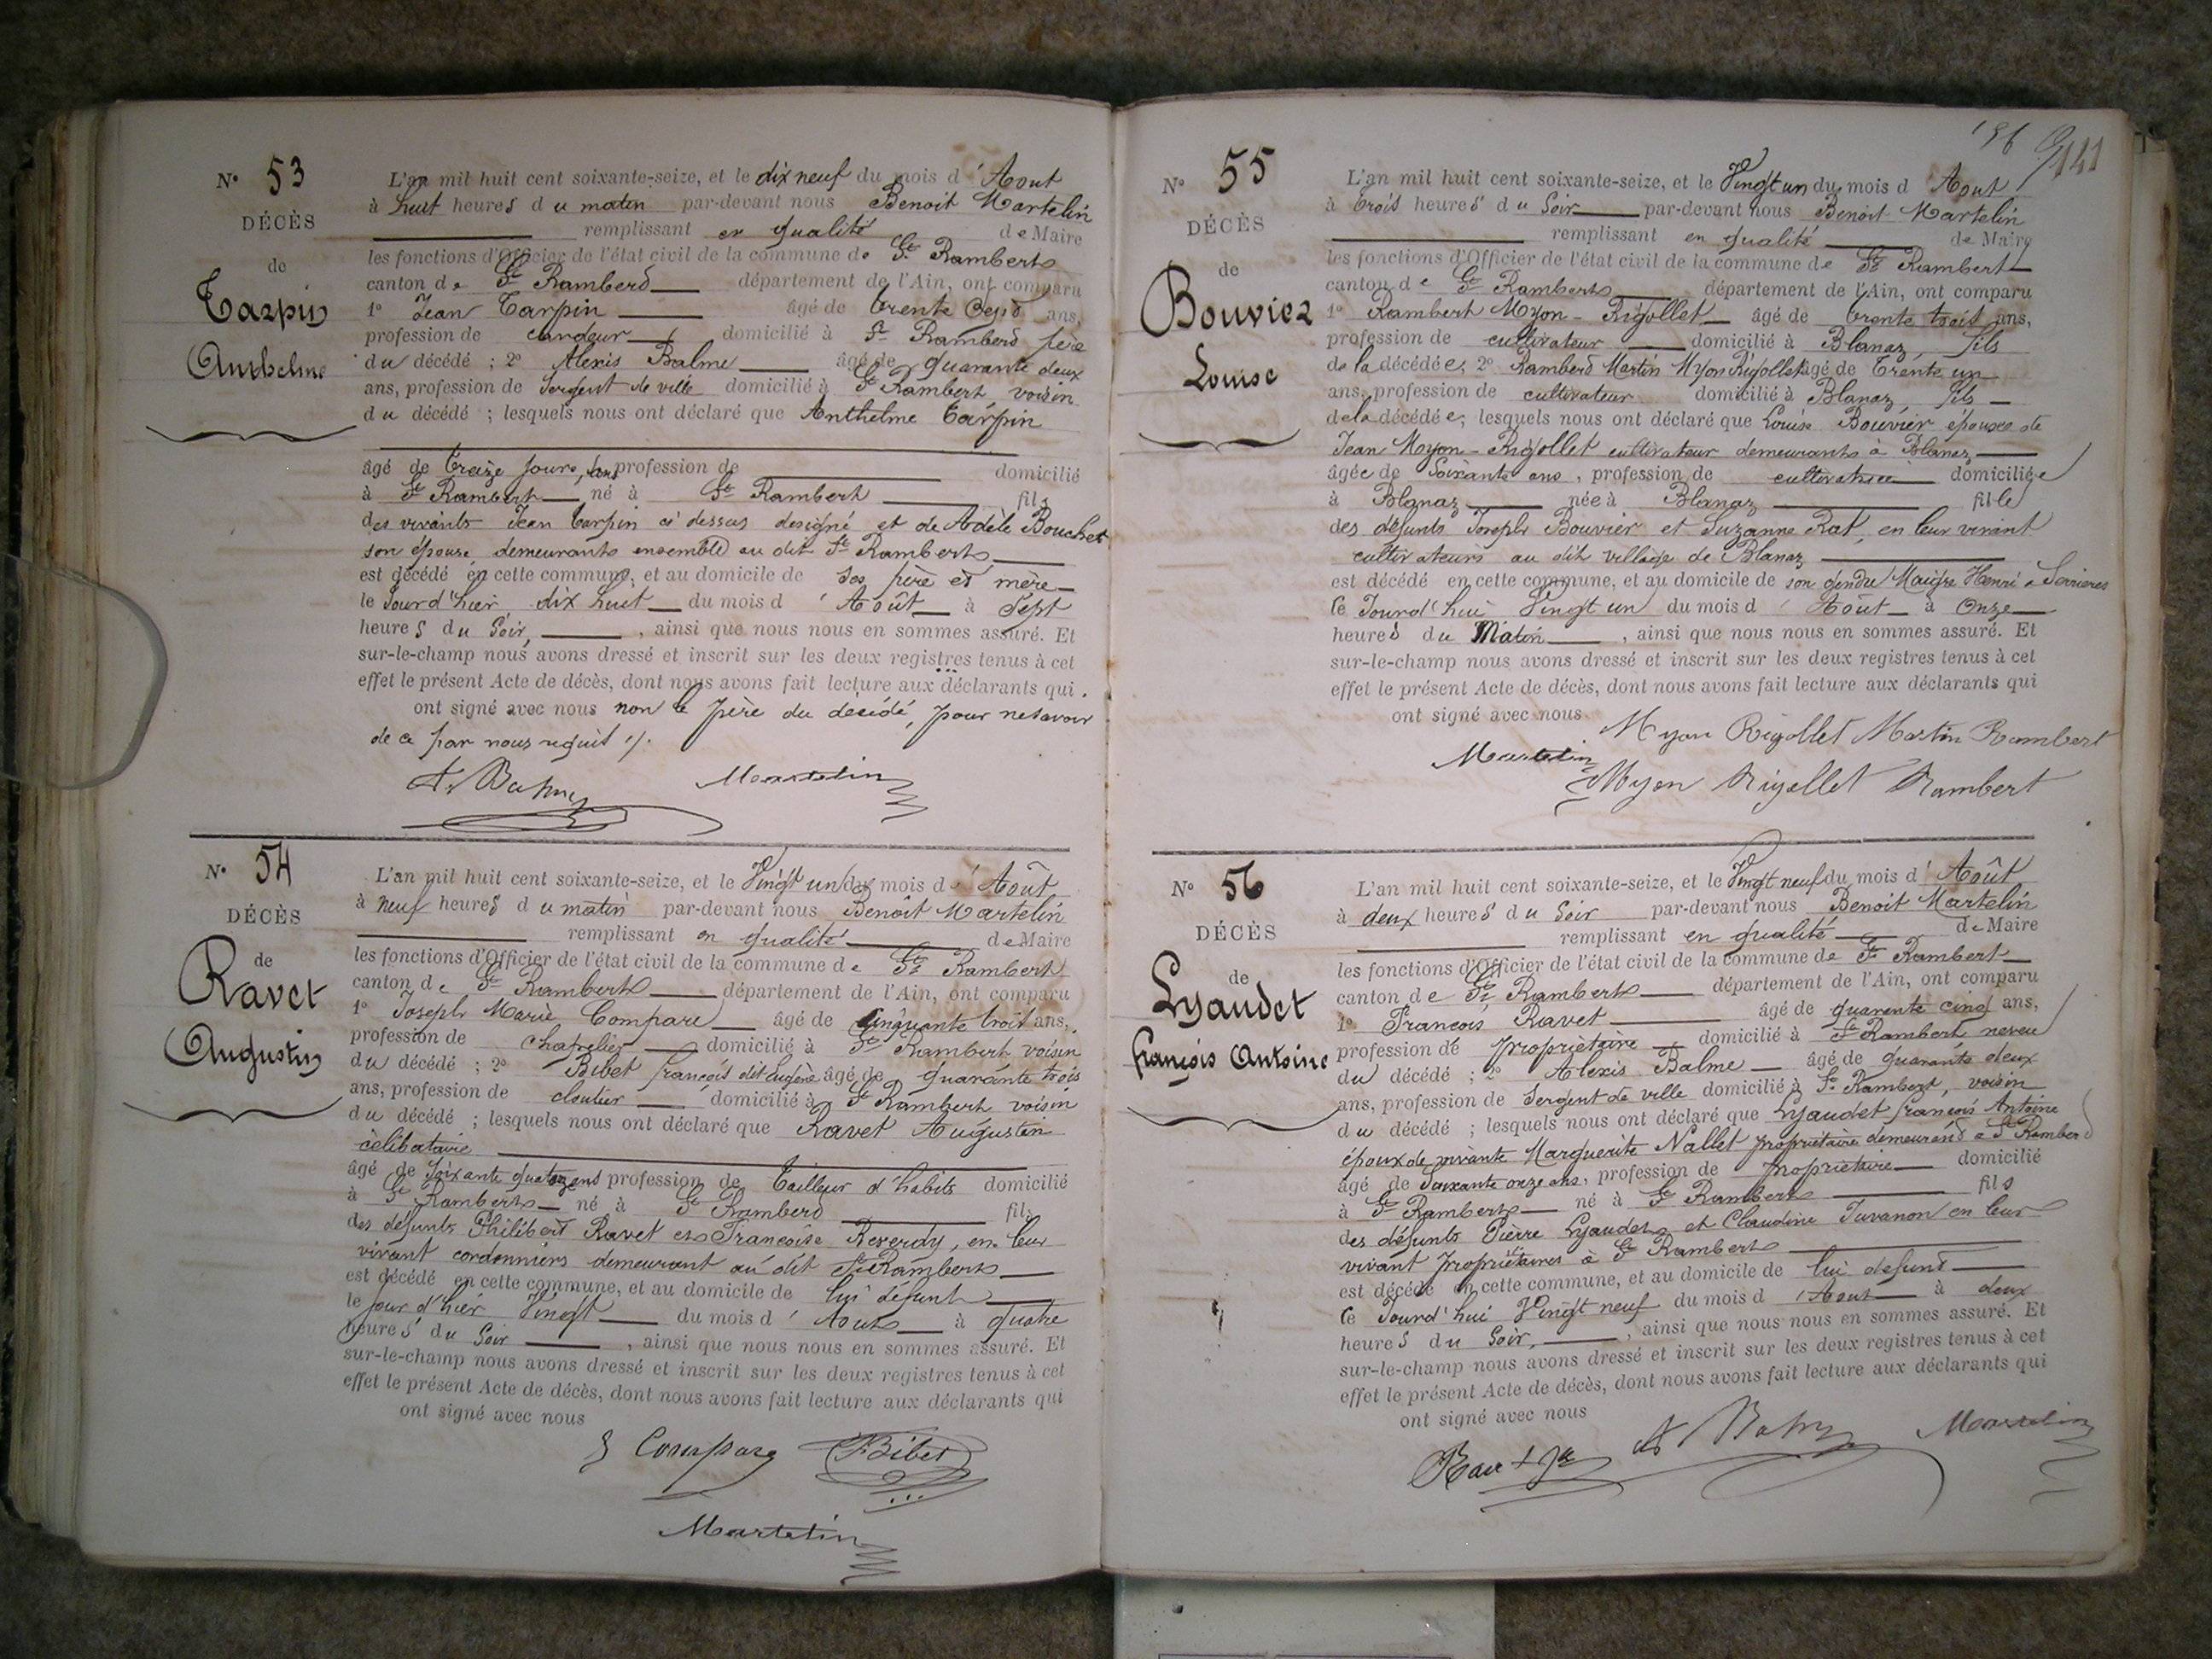 N° 53
DÉCÈS
de
Tarpin
Anthelme
L'an mil huit cent soixante-seize, et le dix neuf du mois d'Aout
à huit heures du matin par-devant nous Benoit Martelin
remplissant en qualité de Maire
les fonctions d'Officier de l'état civil de la commune de St Rambert
canton de St Rambert département de l'Ain, ont comparu
1° Jean Tarpin âgé de trente sept ans,
profession de cardeur domicilié à St Rambert père
du décédé ; 2° Alexis Balme âgé de quarante deux
ans, profession de Sergent de ville domicilié à St Rambert voisin
du décédé ; lesquels nous ont déclaré que Anthelme Tarpin
âgé de treize jours, profession de domicilié
à St Rambert né à St Rambert fils
des vivants Jean Tarpin ci dessus designé et de Adèle Bouchet
son épouse demeurants ensemble au dit St Rambert
est décédé en cette commune, et au domicile de ses père et mère
le Jourd'hier dix huit du mois d'Août à Sept
heures du Soir, , ainsi que nous nous en sommes assuré. Et
sur-le-champ nous avons dressé et inscrit sur les deux registres tenus à cet
effet le présent Acte de décès, dont nous avons fait lecture aux déclarants qui
ont signé avec nous non le père du décédé, pour ne savoir
de ce par nous requis ./.
A. Balme Martelin
N° 54
DÉCÈS
de
Ravet
Augustin
L'an mil huit cent soixante-seize, et le Vingt un du mois d'Août
à neuf heures du matin par-devant nous Benoît Martelin
remplissant en qualité de Maire
les fonctions d'Officier de l'état civil de la commune de St Rambert
canton de St Rambert département de l'Ain, ont comparu
1° Joseph Marie Compare âgé de Cinquante trois ans,
profession de Chapelier domicilié à St Rambert voisin
du décédé ; 2° Bibet françois dit Eugène âgé de quarante trois
ans, profession de cloutier domicilié à St Rambert voisin
du décédé ; lesquels nous ont déclaré que Ravet Augustin
célibataire
âgé de Soixante quatorze ans profession de Tailleur d'habits domicilié
à St Rambert né à St Rambert fils
des défunts Philibert Ravet et Francoise Reverdy, en leur
vivant cordonniers demeurant au dit St Rambert
est décédé en cette commune, et au domicile de lui défunt
le jour d'hier Vingt du mois d'Aout à quatre
heures du Soir , ainsi que nous nous en sommes assuré. Et
sur-le-champ nous avons dressé et inscrit sur les deux registres tenus à cet
effet le présent Acte de décès, dont nous avons fait lecture aux déclarants qui
ont signé avec nous
Compare Bibet
Martelin
141
N° 55
DÉCÈS
de
Bouvier
Louise
L'an mil huit cent soixante-seize, et le Vingt un du mois d Aout
à trois heures du Soir par-devant nous Benoit Martelin
remplissant en qualité de Maire
les fonctions d'Officier de l'état civil de la commune de St Rambert
canton de St Rambert département de l'Ain, ont comparu
1° Rambert Myon-Rigollet âgé de trente trois ans,
profession de cultivateur domicilié à Blanaz, fils
de la décédée, 2° Rambert Martin Myon Rigollet âgé de Trente un
ans, profession de cultivateur domicilié à Blanaz, fils
de la décédée, lesquels nous ont déclaré que Louise Bouvier épouse de
Jean Myon-Rigollet cultivateur demeurants à Blanaz
âgée de Soixante ans, profession de cultivatrice domiciliée
à Blanaz née à Blanaz fille
des défunts Joseph Bouvier et Suzanne Rat, en leur vivant
cultivateurs au dit village de Blanaz
est décédé en cette commune, et au domicile de son gendre Maigre Henri à Serrieres
le Jourd'hui Vingt un du mois d'Août à Onze
heures du Matin , ainsi que nous nous en sommes assuré. Et
sur-le-champ nous avons dressé et inscrit sur les deux registres tenus à cet
effet le présent Acte de décès, dont nous avons fait lecture aux déclarants qui
ont signé avec nous. Myon Rigollet Martin Rambert
Martelin Myon Rigollet Rambert
N° 56
DÉCÈS
de
Lyaudet
françois Antoine
L'an mil huit cent soixante-seize, et le Vingt neuf du mois d'Août
à deux heures du Soir par-devant nous Benoit Martelin
remplissant en qualité de Maire
les fonctions d'Officier de l'état civil de la commune de St Rambert
canton de St Rambert département de l'Ain, ont comparu
1° Francois Ravet âgé de quarante cinq ans,
profession de propriétaire domicilié à St Rambert neveu
du décédé ; 2° Alexis Balme âgé de quarante deux
ans, profession de Sergent de ville domicilié à St Rambert, voisin
du décédé ; lesquels nous ont déclaré que Lyaudet francois Antoine
époux de vivante Marguerite Nallet propriétaire demeurant à St Rambert
âgé de Soixante onze ans, profession de propriétaire domicilié
à St Rambert né à St Rambert fils
des défunts Pierre Lyaudet et Claudine Juvanon en leur
vivant propriétaires à St Rambert
est décédé en cette commune, et au domicile de lui defunt
le Jourd'hui Vingt neuf du mois d'Aout à deux
heures du Soir, , ainsi que nous nous en sommes assuré. Et
sur-le-champ nous avons dressé et inscrit sur les deux registres tenus à cet
effet le présent Acte de décès, dont nous avons fait lecture aux déclarants qui
ont signé avec nous
A Balme Martelin